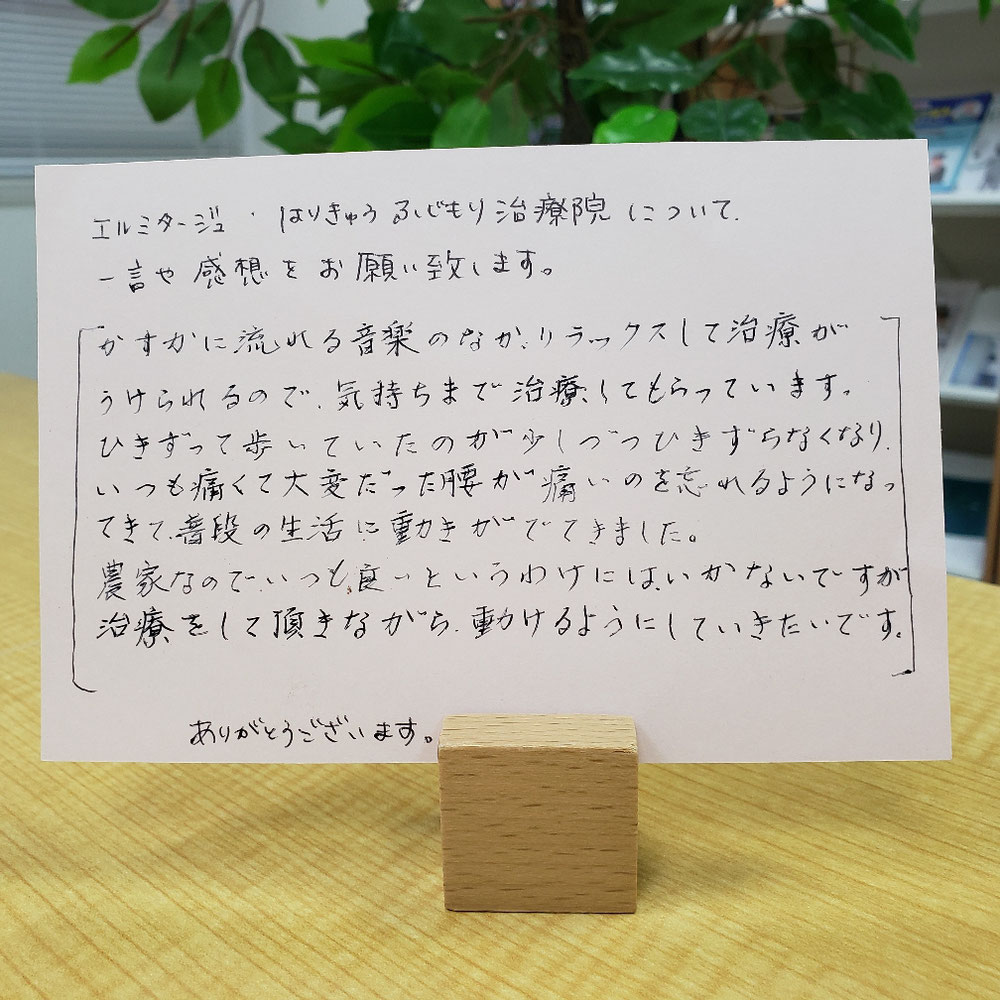 エルミタージュ・はりきゅうふじもり治療院について、
一言や感想をお願い致します。
かすかに流れる音楽のなか、リラックスして治療が
うけられるので、気持ちまで治療してもらっています。
ひきずって歩いていたのが少しづつひきずらなくなり、
いつも痛くて大変だった腰が痛いのを忘れるようになっ
てきて、普段の生活に動きがでてきました。
農家なので、いつも良いというわけにはいかないですが
治療をして頂きながら、動けるようにしていきたいです。
ありがとうございます。